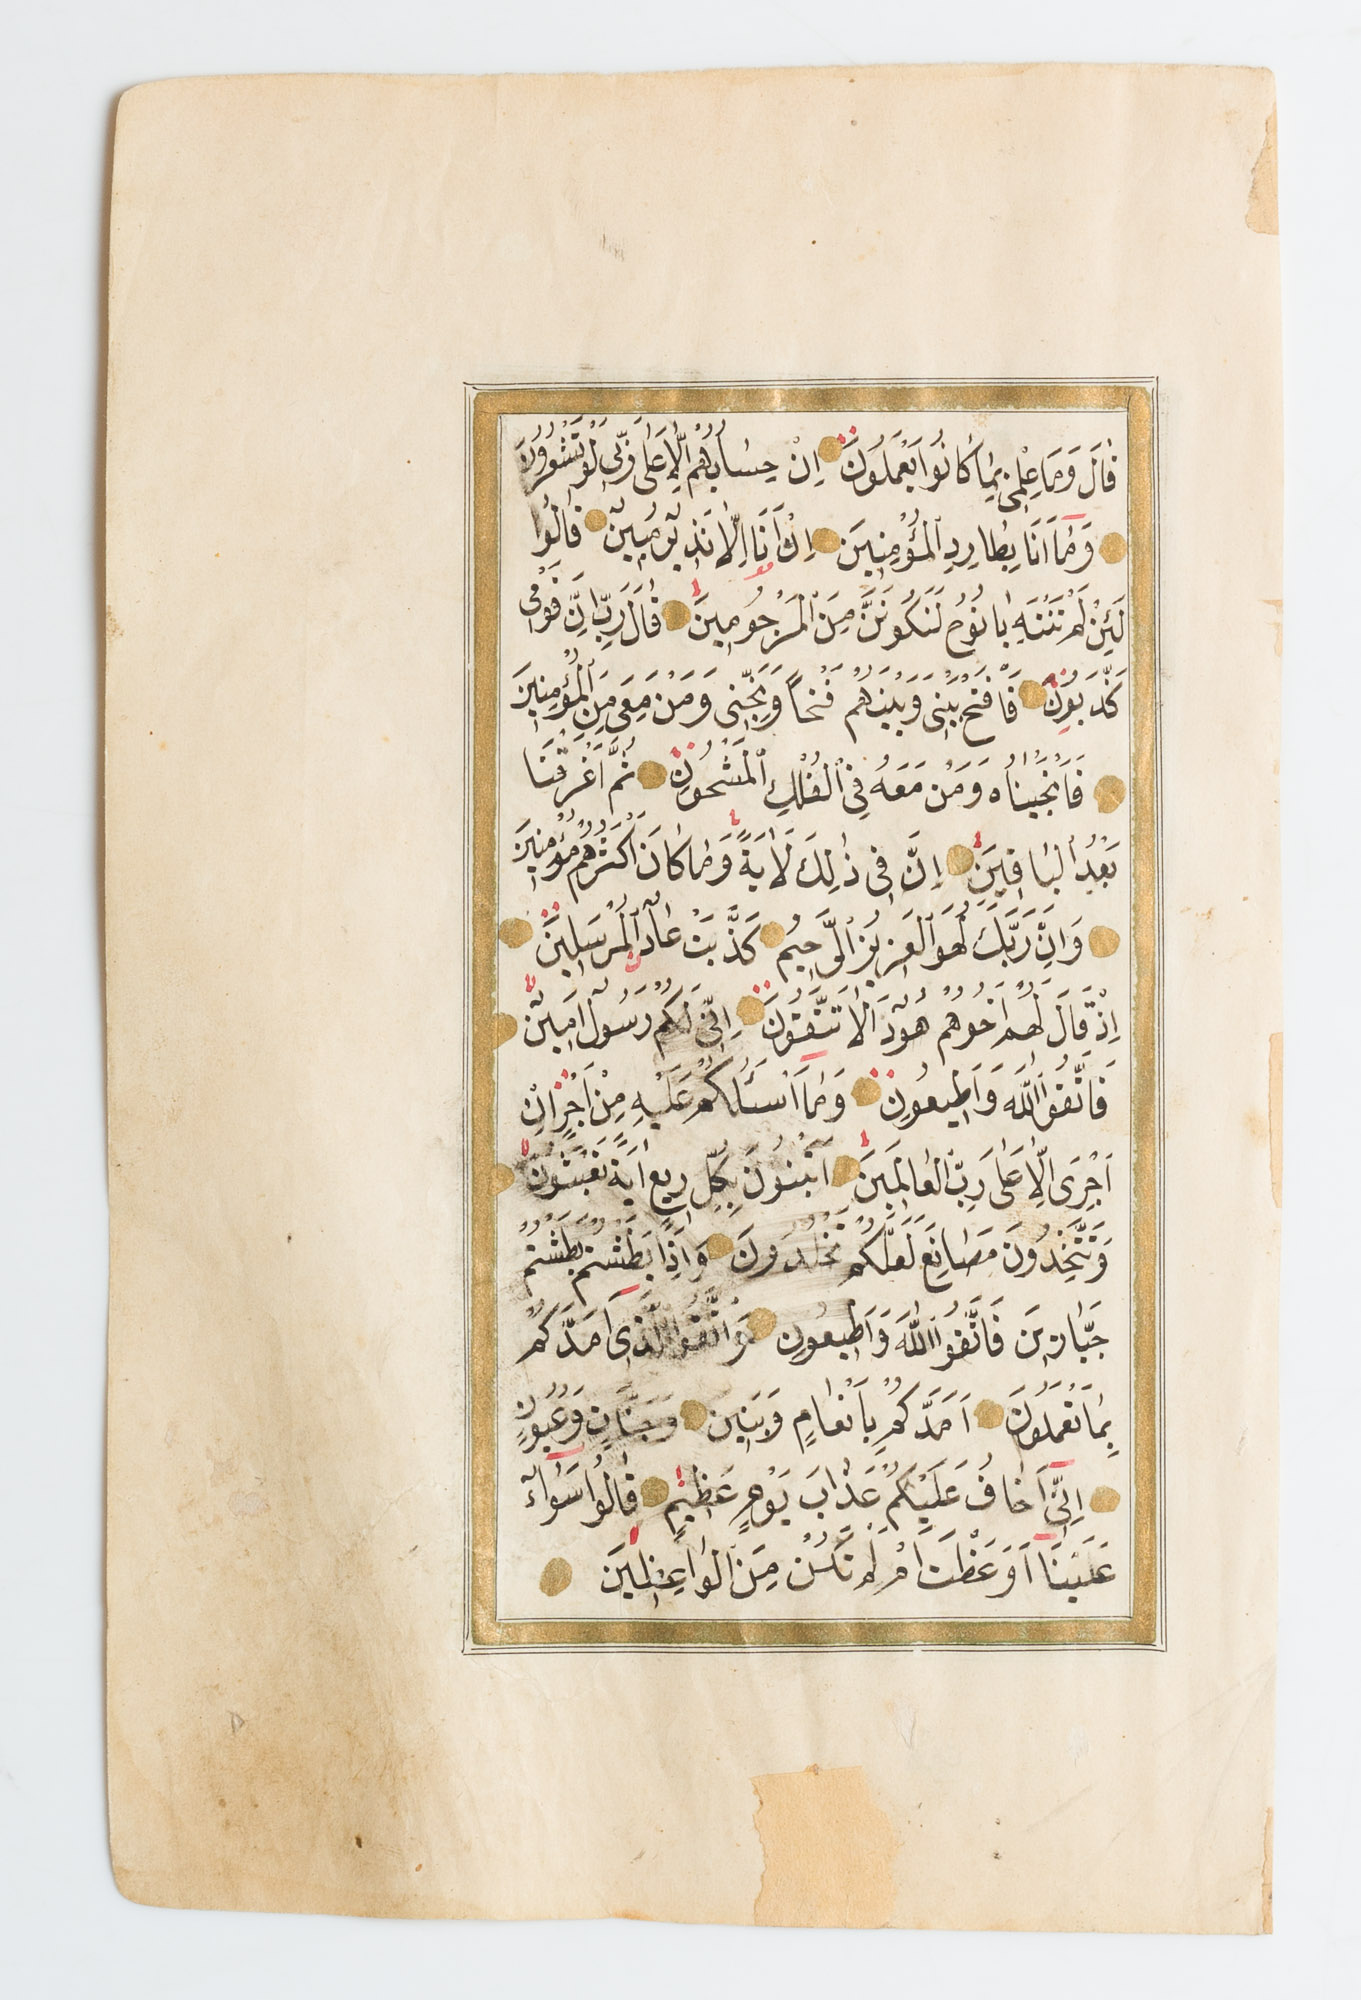 قَالَ وَمَا عِلْمِي بِمَا كَانُوا يَعْمَلُونَ اِنْ حِسَابُهُمْ اِلَّا عَلٰى رَبِّى لَوْ تَشْعُرُونَ
وَمَٓا اَنَا بِطَارِدِ الْمُؤْمِنِينَ اِنْ اَنَا اِلَّا نَذِيرٌ مُبِينٌ قَالُوا
لَئِنْ لَمْ تَنْتَهِ يَا نُوحُ لَتَكُونَنَّ مِنَ الْمَرْجُومِينَ قَالَ رَبِّ اِنَّ قَوْمِى
كَذَّبُونِ فَافْتَحْ بَيْنِى وَبَيْنَهُمْ فَتْحًا وَنَجِّنِى وَمَنْ مَعِىَ مِنَ الْمُؤْمِنِينَ
فَاَنْجَيْنَاهُ وَمَنْ مَعَهُ فِى الْفُلْكِ الْمَشْحُونِ ثُمَّ اَغْرَقْنَا
بَعْدُ الْبَاقِينَ اِنَّ فِى ذٰلِكَ لَاٰيَةً وَمَا كَانَ اَكْثَرُهُمْ مُؤْمِنِينَ
وَاِنَّ رَبَّكَ لَهُوَ الْعَزِيزُ الرَّحِيمُ كَذَّبَتْ عَادٌ الْمُرْسَلِينَ
اِذْ قَالَ لَهُمْ اَخُوهُمْ هُودٌ اَلَا تَتَّقُونَ اِنِّى لَكُمْ رَسُولٌ اَمِينٌ
فَاتَّقُوا اللّٰهَ وَاَطِيعُونِ وَمَٓا اَسْئَلُكُمْ عَلَيْهِ مِنْ اَجْرٍ اِنْ
اَجْرِىَ اِلَّا عَلٰى رَبِّ الْعَالَمِينَ اَتَبْنُونَ بِكُلِّ رِيعٍ اٰيَةً تَعْبَثُونَ
وَتَتَّخِذُونَ مَصَانِعَ لَعَلَّكُمْ تَخْلُدُونَ وَاِذَا بَطَشْتُمْ بَطَشْتُمْ
جَبَّارِينَ فَاتَّقُوا اللّٰهَ وَاَطِيعُونِ وَاتَّقُوا الَّذِٓى اَمَدَّكُمْ
بِمَا تَعْمَلُونَ اَمَدَّكُمْ بِاَنْعَامٍ وَبَنِينَ وَجَنَّاتٍ وَعُيُونٍ
اِنِّٓى اَخَافُ عَلَيْكُمْ عَذَابَ يَوْمٍ عَظِيمٍ قَالُوا سَوَٓاءٌ
عَلَيْنَٓا اَوَعَظْتَ اَمْ لَمْ تَكُنْ مِنَ الْوَاعِظِينَ